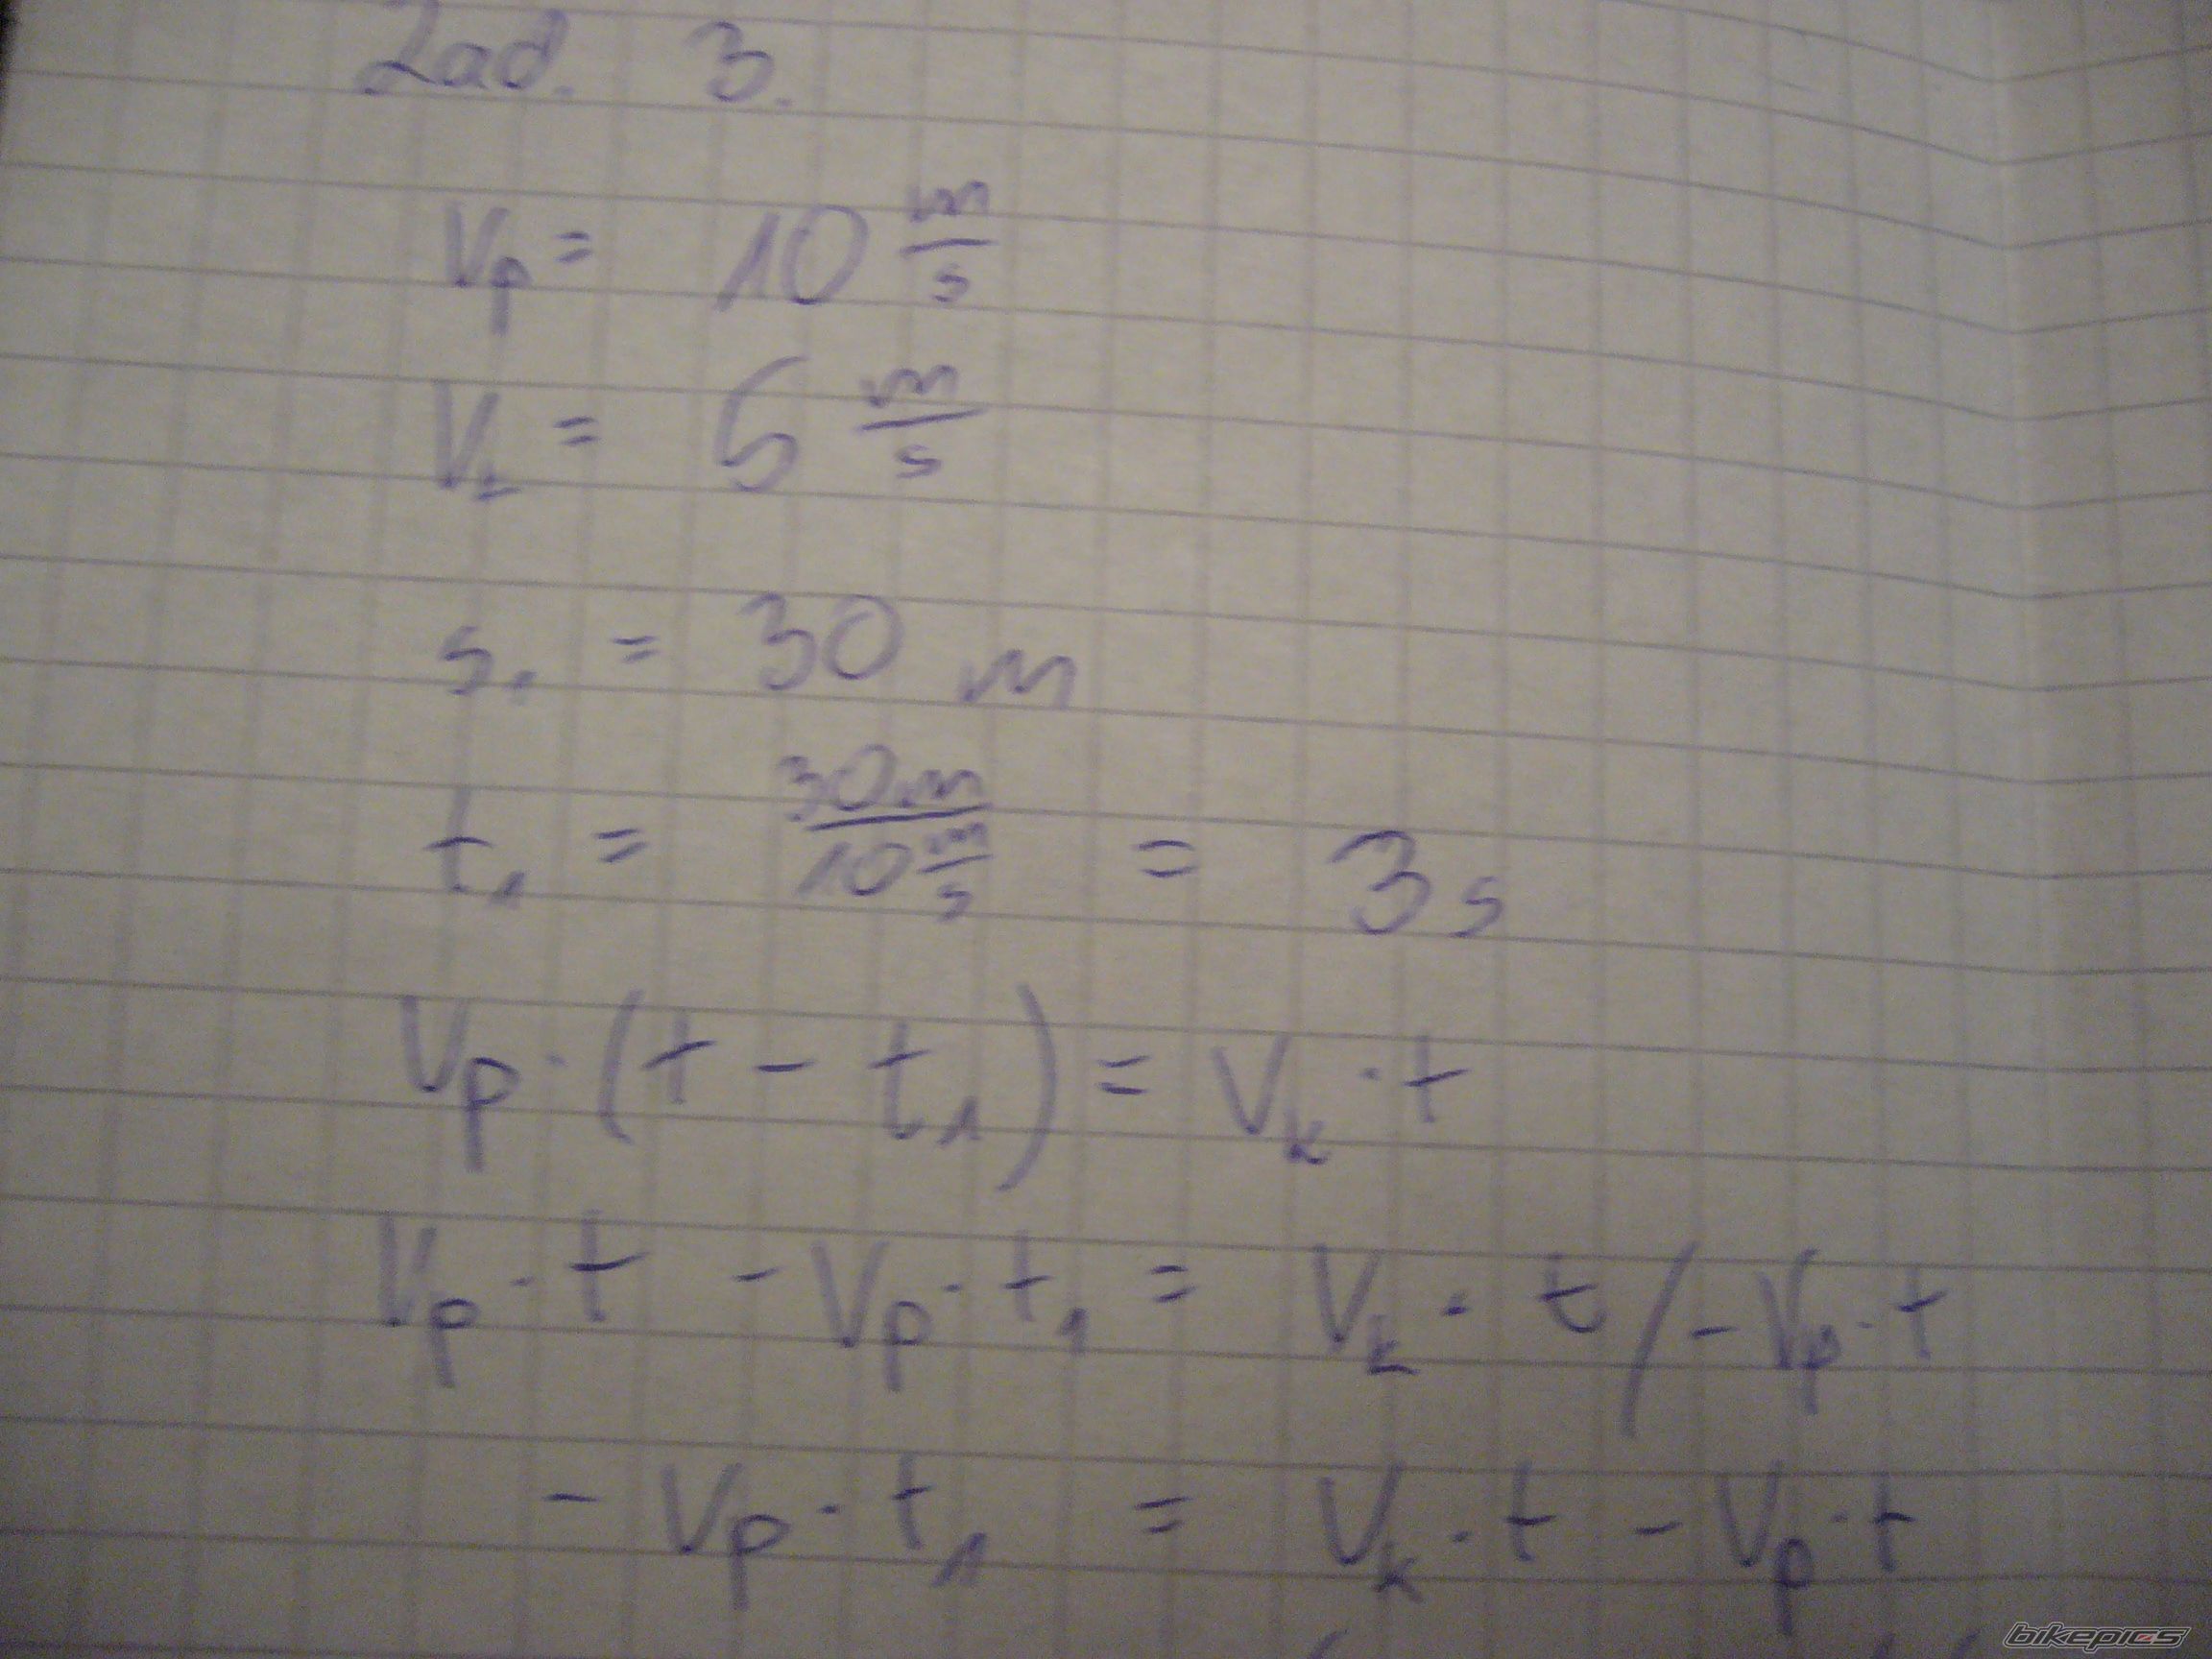 Zad. 3.
Vp = 10 m/s
Vk = 5 m/s
s1 = 30 m
t1 = 30m/10 m/s = 3s
Vp · (t - t1) = Vk · t
Vp · t - Vp · t1 = Vk · t / - Vp · t
- Vp · t1 = Vk · t - Vp · t
bikepics